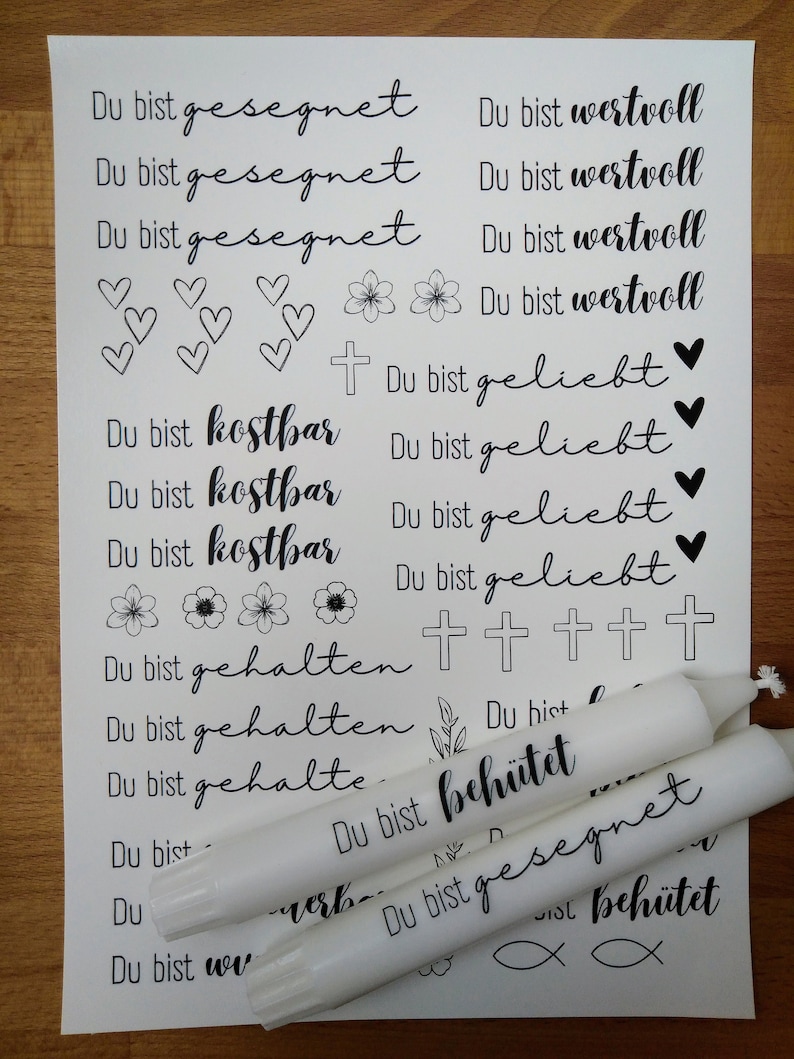 Du bist gesegnet
Du bist gesegnet
Du bist gesegnet
Du bist wertvoll
Du bist wertvoll
Du bist wertvoll
Du bist wertvoll
Du bist geliebt
Du bist geliebt
Du bist geliebt
Du bist geliebt
Du bist kostbar
Du bist kostbar
Du bist kostbar
Du bist gehalten
Du bist gehalten
Du bist
Du bist
Du bist
Du
Du bist
bist behütet
Du bist behütet
Du bist gesegnet